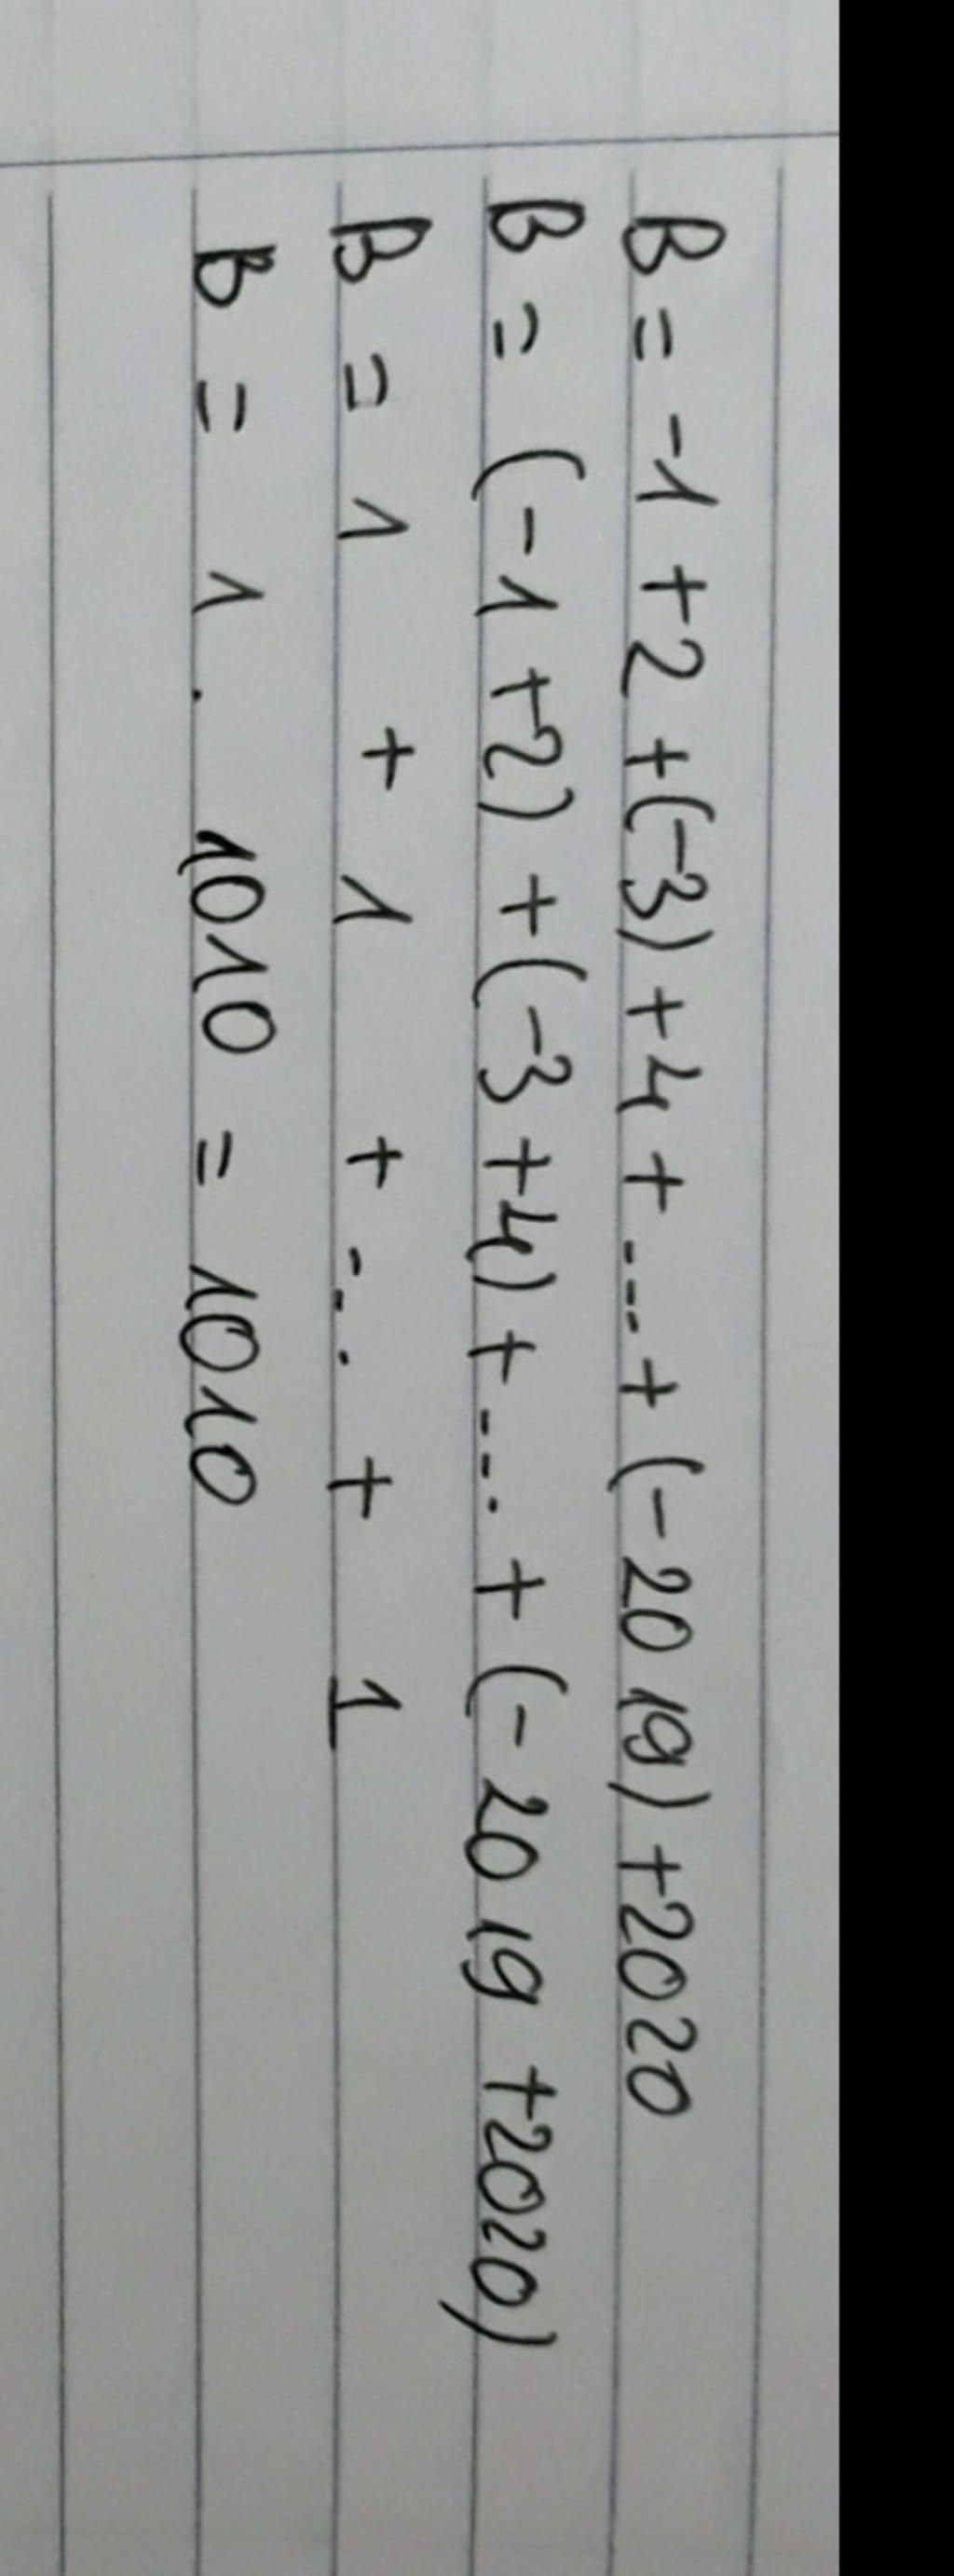 B = -1 +2 +(-3) +4 + ... + (-2019) +2020
B = (-1 +2) +(-3 +4) + ... + (-2019 +2020)
B = 1 + 1 + ... + 1
B = 1 . 1010 = 1010